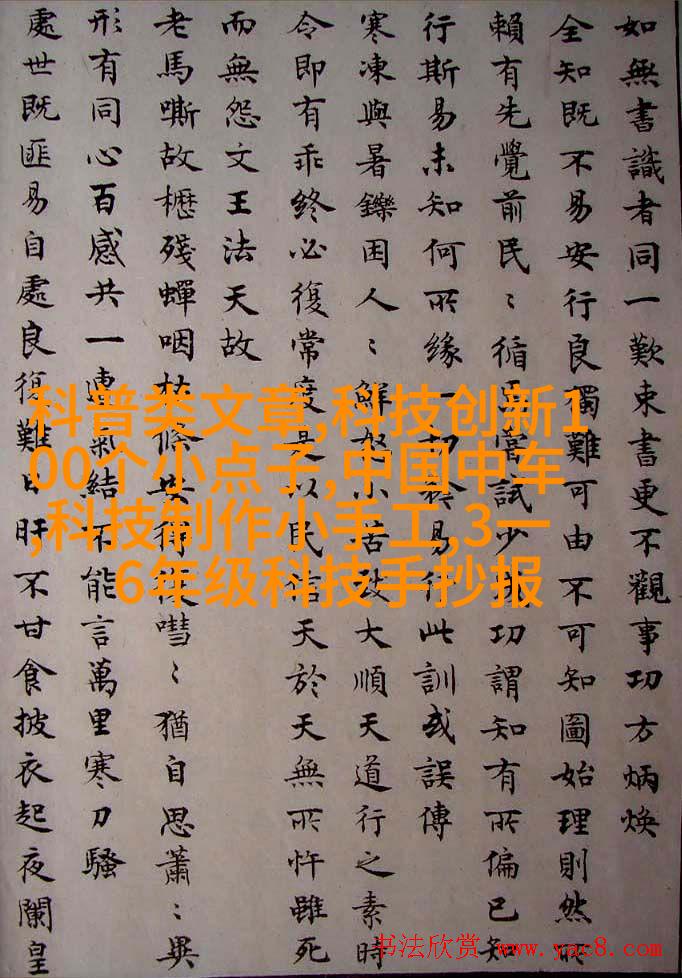 如無書識者同一歎束書更不觀事功方炳煥
全知既不易安行良獨難可由不可知圖始理則然所
賴有先覺前民〻循 當試少 功謂知有所偏已知
行斯易未知何所緣一切 易行此訓或誤傳
寒凍與暑鑠困人〻鮮 小苦致大順天道行之素時
令即有乖終必復常度是以民 天於天無所忤雖死
而無怨文王法天故
老馬嘶故櫪殘蟬咽 條 得 嘒〻猶自思蕭〻異
形有同心百感共一 氣結不能言萬里寒刀騷
處世既匪易自處良復難日旰不甘食披衣起夜闌皇
科普类文章,科技创新1
00个小点子,中国中车
,科技制作小手工,3一
6年级科技手抄报
书法欣赏 www.yac8.com